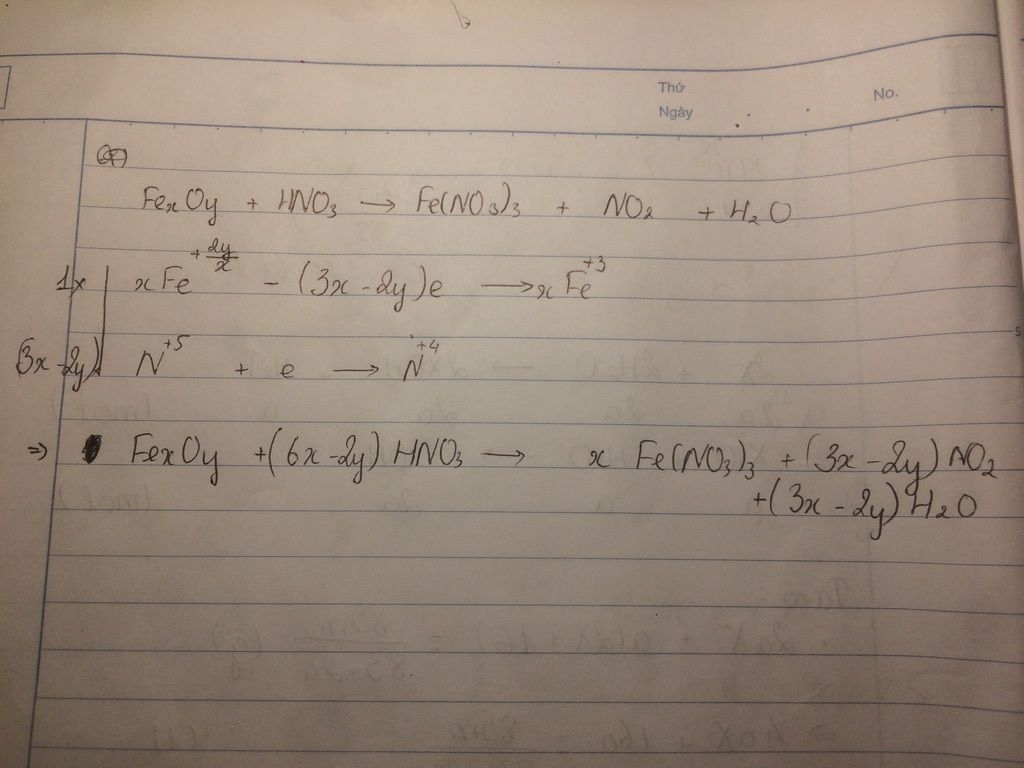 Thứ
Ngày
No.
FexOy + HNO3 → Fe(NO3)3 + NO2 + H2O
1x | xFe^{+2y/x} - (3x-2y)e → xFe^{+3}
(3x-2y) | N^{+5} + e → N^{+4}
⇒ FexOy + (6x-2y) HNO3 → x Fe(NO3)3 + (3x-2y) NO2
+ (3x-2y) H2O